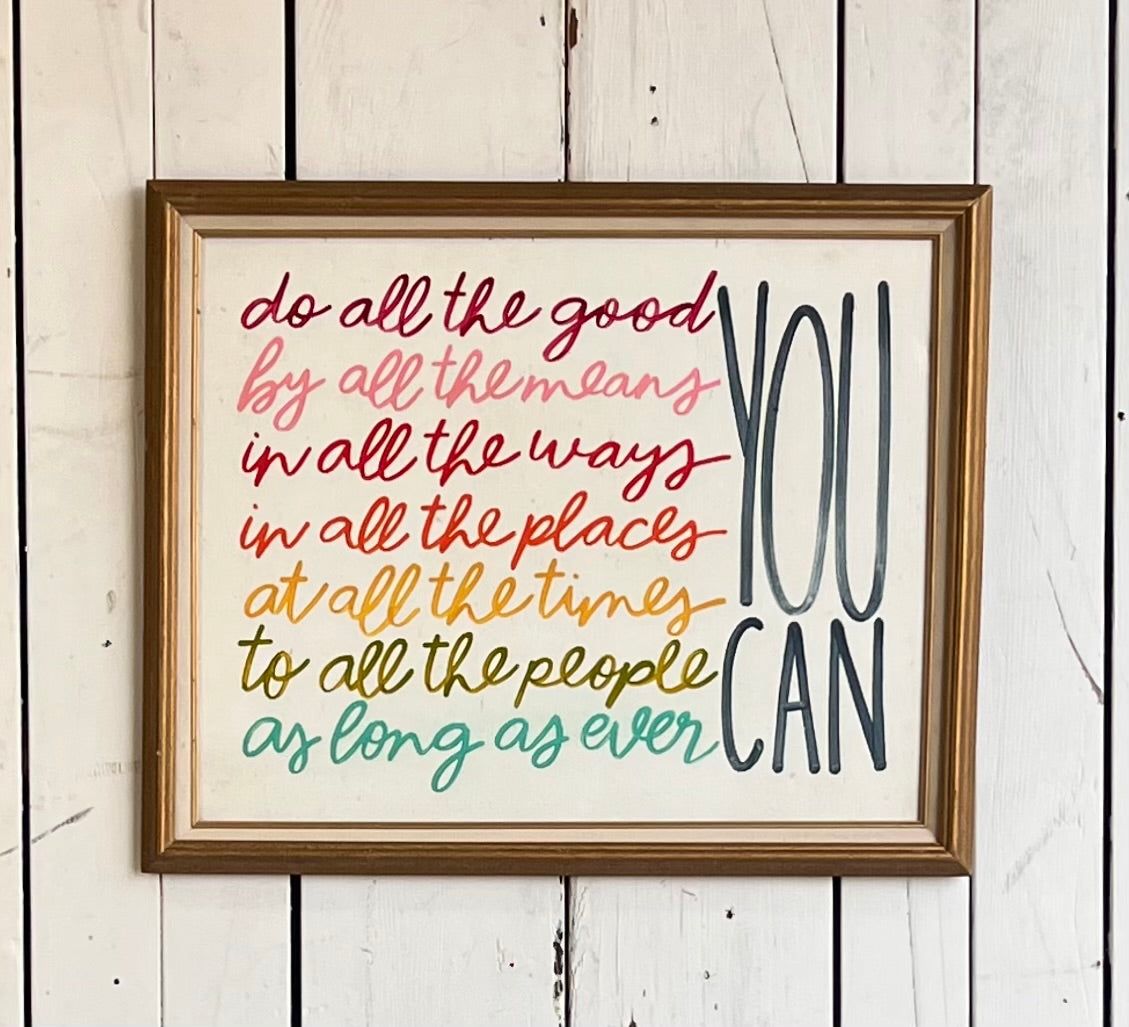 do all the good
by all the means
in all the ways
in all the places
at all the times
to all the people
as long as ever
YOU
CAN